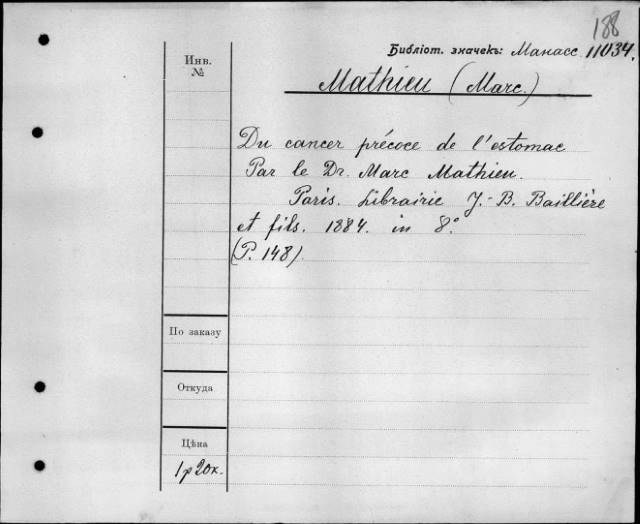 188
Библіот. значекъ: Манасс. 11034.
Инв. №
Mathieu (Marc.)
Du cancer précoce de l'estomac
Par le Dr. Marc Mathieu.
Paris. Librairie J.-B. Baillière
et fils. 1884. in 8.°
(P. 148).
По заказу
Откуда
Цѣна
1 р 20 к.